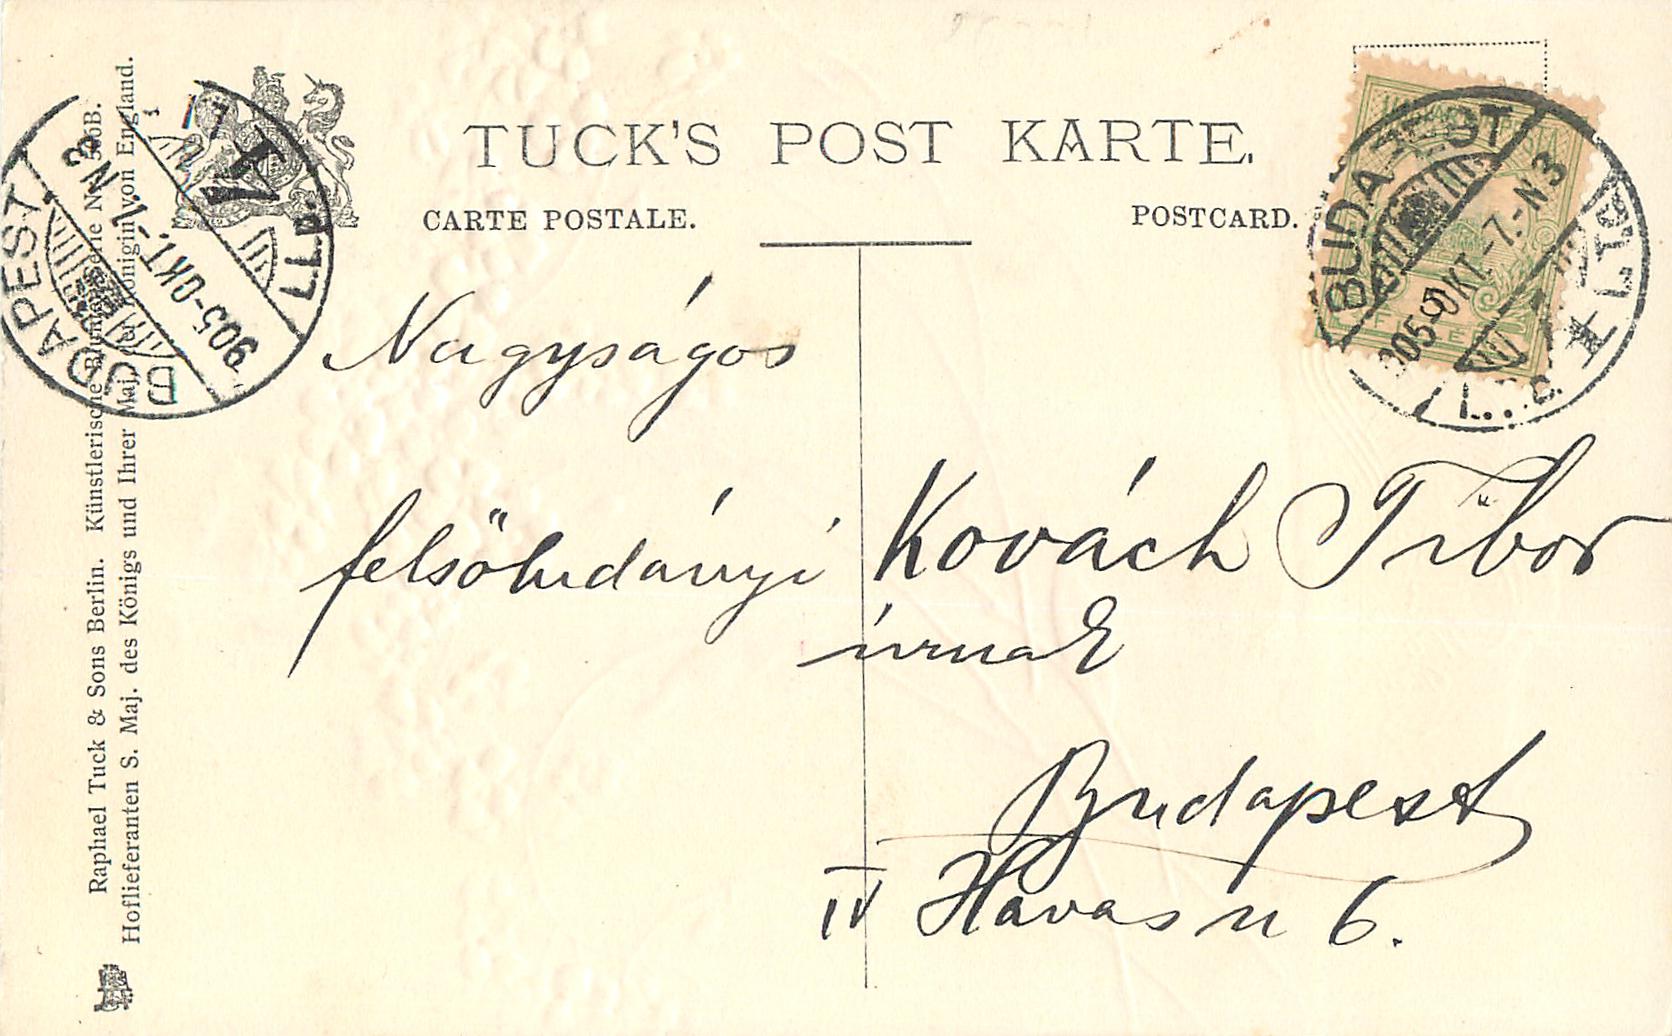 TUCK'S POST KARTE.
CARTE POSTALE.
POSTCARD.
BUDAPEST
905 OKT. -7. N3
BUDAPEST
905 OKT -7.- N3
Nagyságos
felsőludányi Kovách Tibor
úrnak
Budapest
IV Havas u 6.
Raphael Tuck & Sons Berlin. Künstlerische Blumen Serie No.
Hoflieferanten S. Maj. des Königs und Ihrer Maj. der Königin von England.